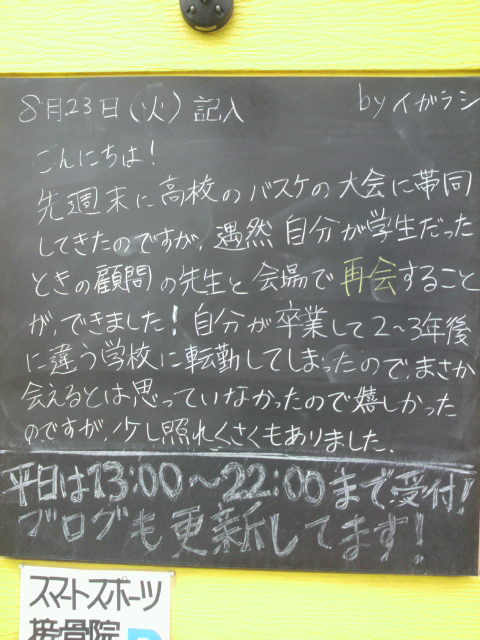 8月23日(火)記入 byイガラシ
こんにちは!
先週末に高校のバスケの大会に帯同
してきたのですが、遇然自分が学生だった
ときの顧問の先生と会場で再会すること
が、できました!自分が卒業して2~3年後
に違う学校に転勤してしまったので、まさか
会えるとは思っていなかったので嬉しかった
のですが、少し照れくさくもありました。
平日は13:00~22:00まで受付!
ブログも更新してます!
スマートスポーツ
接骨院